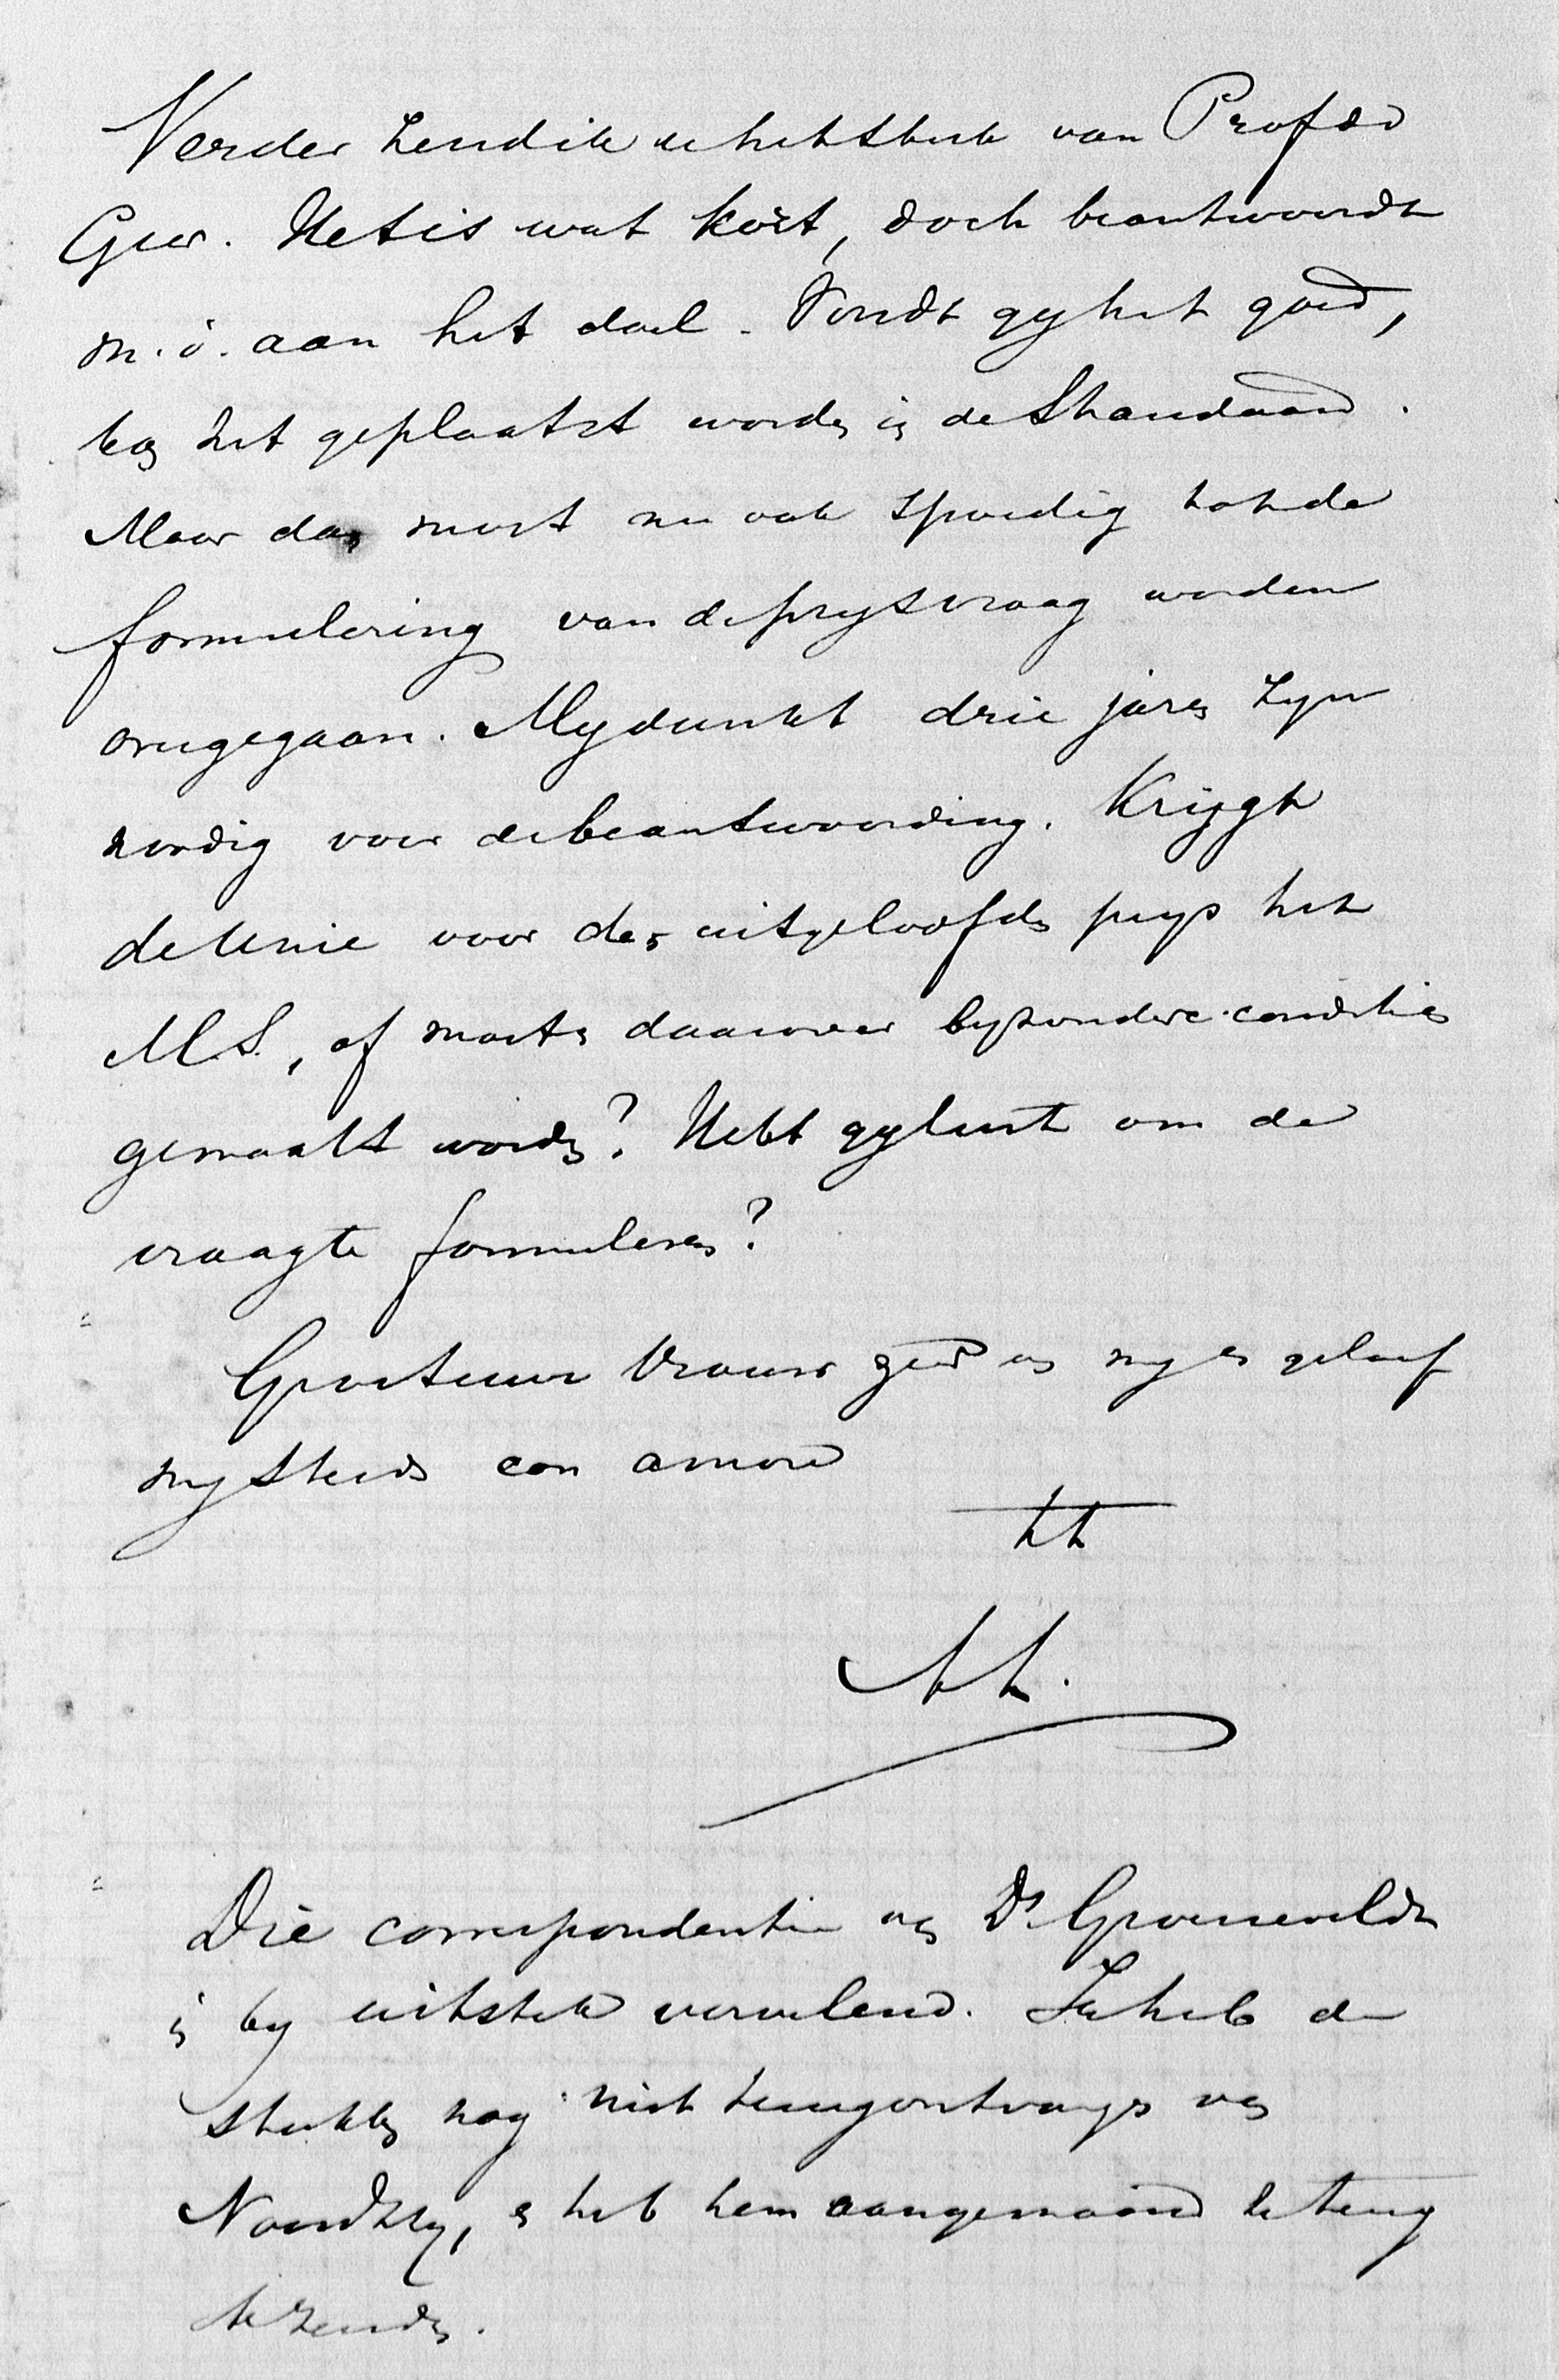 Verder zend ik u het stuk van Prof de
Geer. Het is wat kort, doch beantwoordt
m.i. aan het doel. Vondt gy het goed,
kan het geplaatst worden in de Standaard.
Maar dan moet nu ook spoedig tot de
formulering van de prysvraag worden
overgegaan. My dunkt drie jaren zyn
noodig voor de beantwoording. Krijgt
de Unie voor den uitgeloofden prys het
M.S., of moeten daarover byzondere conditien
gemaakt worden? Hebt gy lust om de
vraag te formuleren?
Groet uw vrouw zeer van my en geloof
my steeds con amore
tt
Die correspondentie van Ds Groeneveldt
is by uitstek vervelend. Ik heb de
stukken nog niet terugontvangen van
Noordtzy, en heb hem aangemaand ze terug
te zenden.